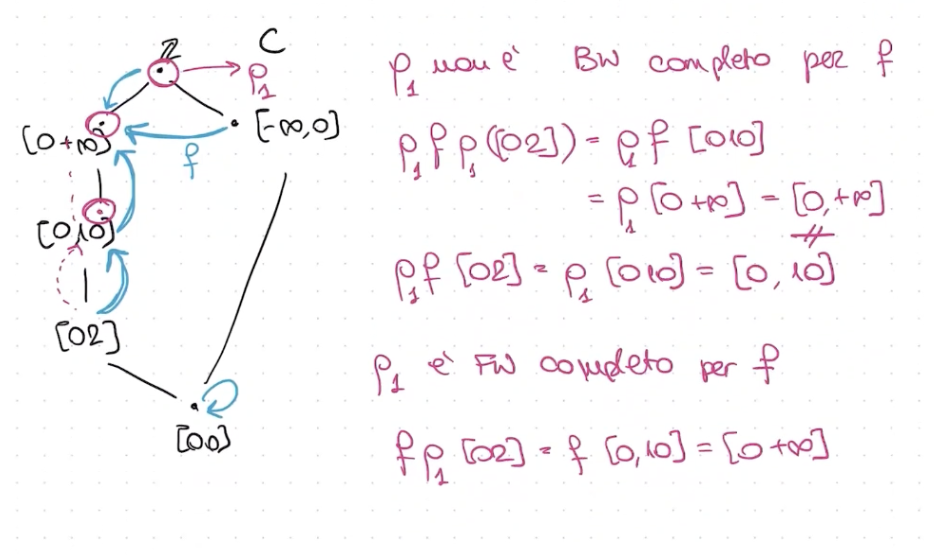 ℤ C
ρ₁
[0+∞] [-∞,0]
f
[0,10]
[02]
[00]
ρ₁ non è BW completo per f
ρ₁ f ρ₁([02]) = ρ₁ f [010]
= ρ₁ [0+∞] = [0,+∞]
≠
ρ₁ f [02] = ρ₁ [010] = [0,10]
ρ₁ è FW completo per f
f ρ₁ [02] = f [0,10] = [0+∞]